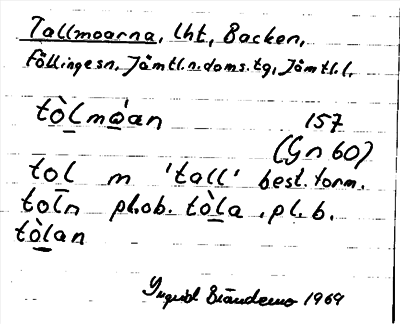 Tallmoarna, lht, Backen,
Föllingesn, Jämtl.n.doms.tg, Jämtl.l.
tòlmo̩'an 157
(Gn 60)
tol m 'tall' best. form.
toln pl.ob. tòla . pl. b.
tòlan
Ingrid Brändemo 1969